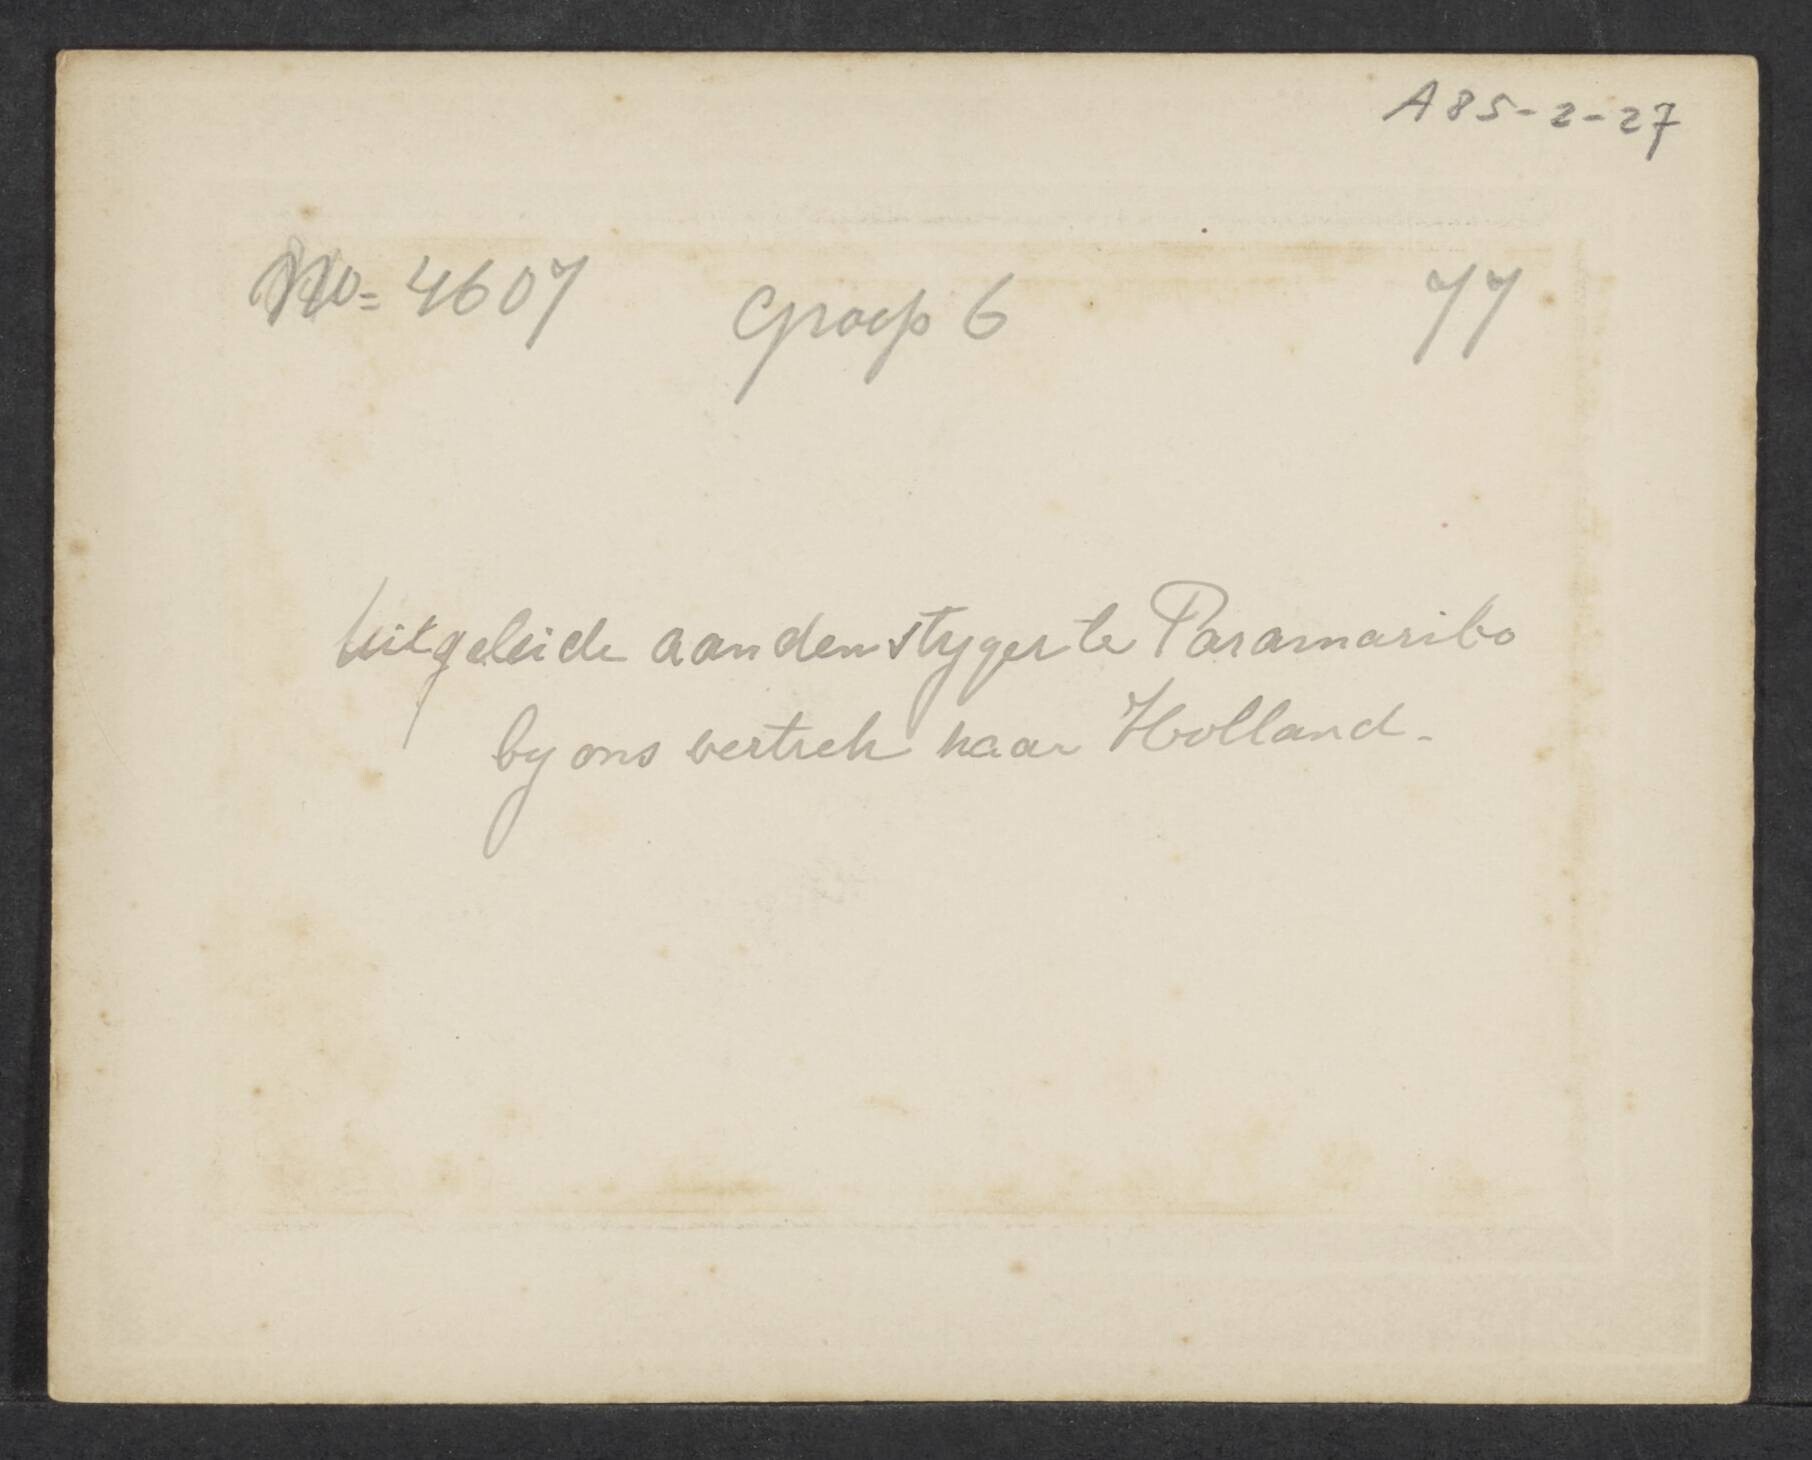 A85-2-27
No= 4607 Groep 6 77
Uitgeleide aan den styger te Paramaribo
by ons vertrek naar Holland.